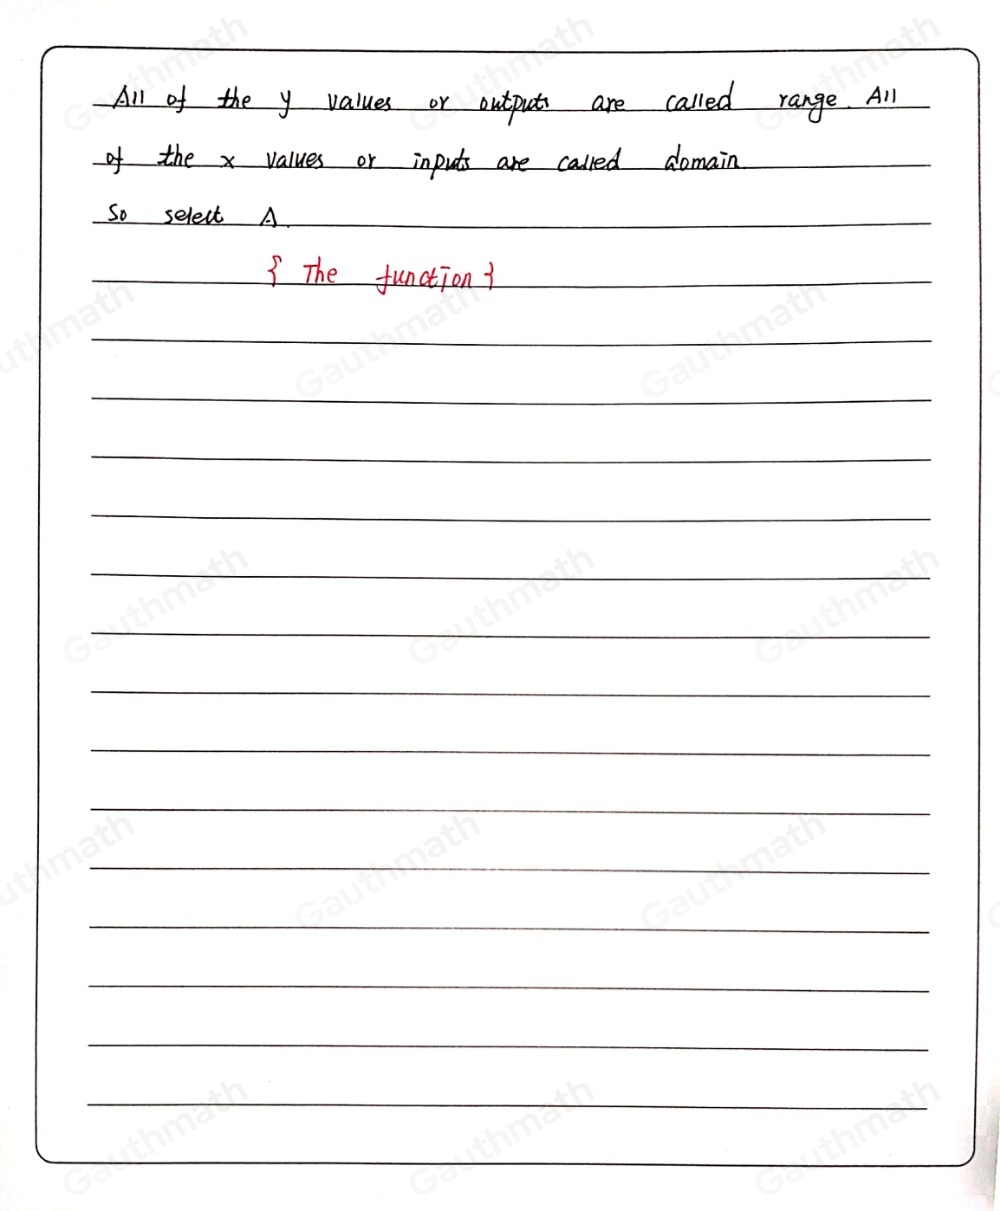 All of the y values or outputs are called range. All
of the x values or inputs are called domain
So select A.
{ The function }